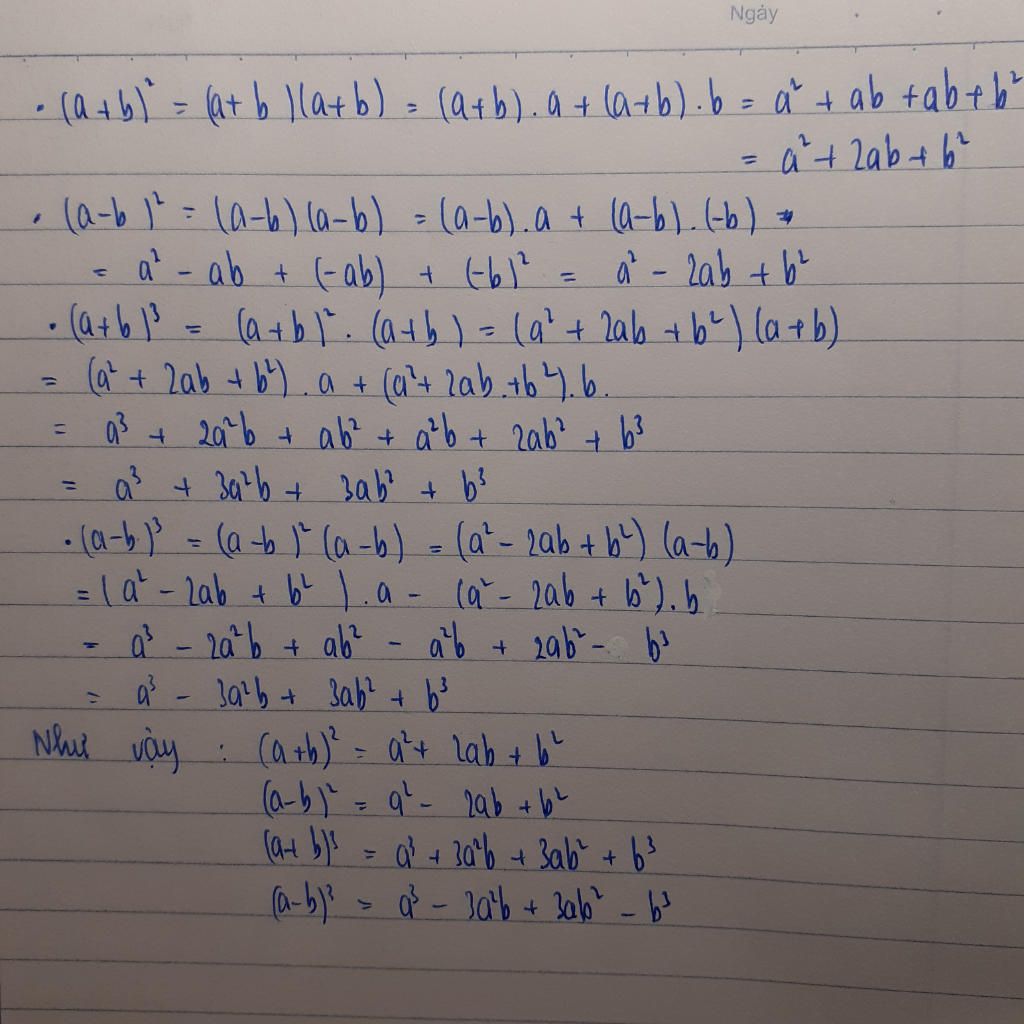 Ngày
• (a+b)² = (a+b)(a+b) = (a+b).a + (a+b).b = a² + ab + ab + b²
= a² + 2ab + b²
• (a-b)² = (a-b)(a-b) = (a-b).a + (a-b).(-b)
= a² - ab + (-ab) + (-b)² = a² - 2ab + b²
• (a+b)³ = (a+b)².(a+b) = (a² + 2ab + b²)(a+b)
= (a² + 2ab + b²).a + (a² + 2ab + b²).b.
= a³ + 2a²b + ab² + a²b + 2ab² + b³
= a³ + 3a²b + 3ab² + b³
• (a-b)³ = (a-b)²(a-b) = (a² - 2ab + b²)(a-b)
= (a² - 2ab + b²).a - (a² - 2ab + b²).b
= a³ - 2a²b + ab² - a²b + 2ab² - b³
= a³ - 3a²b + 3ab² + b³
Như vậy : (a+b)² = a² + 2ab + b²
(a-b)² = a² - 2ab + b²
(a+b)³ = a³ + 3a²b + 3ab² + b³
(a-b)³ = a³ - 3a²b + 3ab² - b³